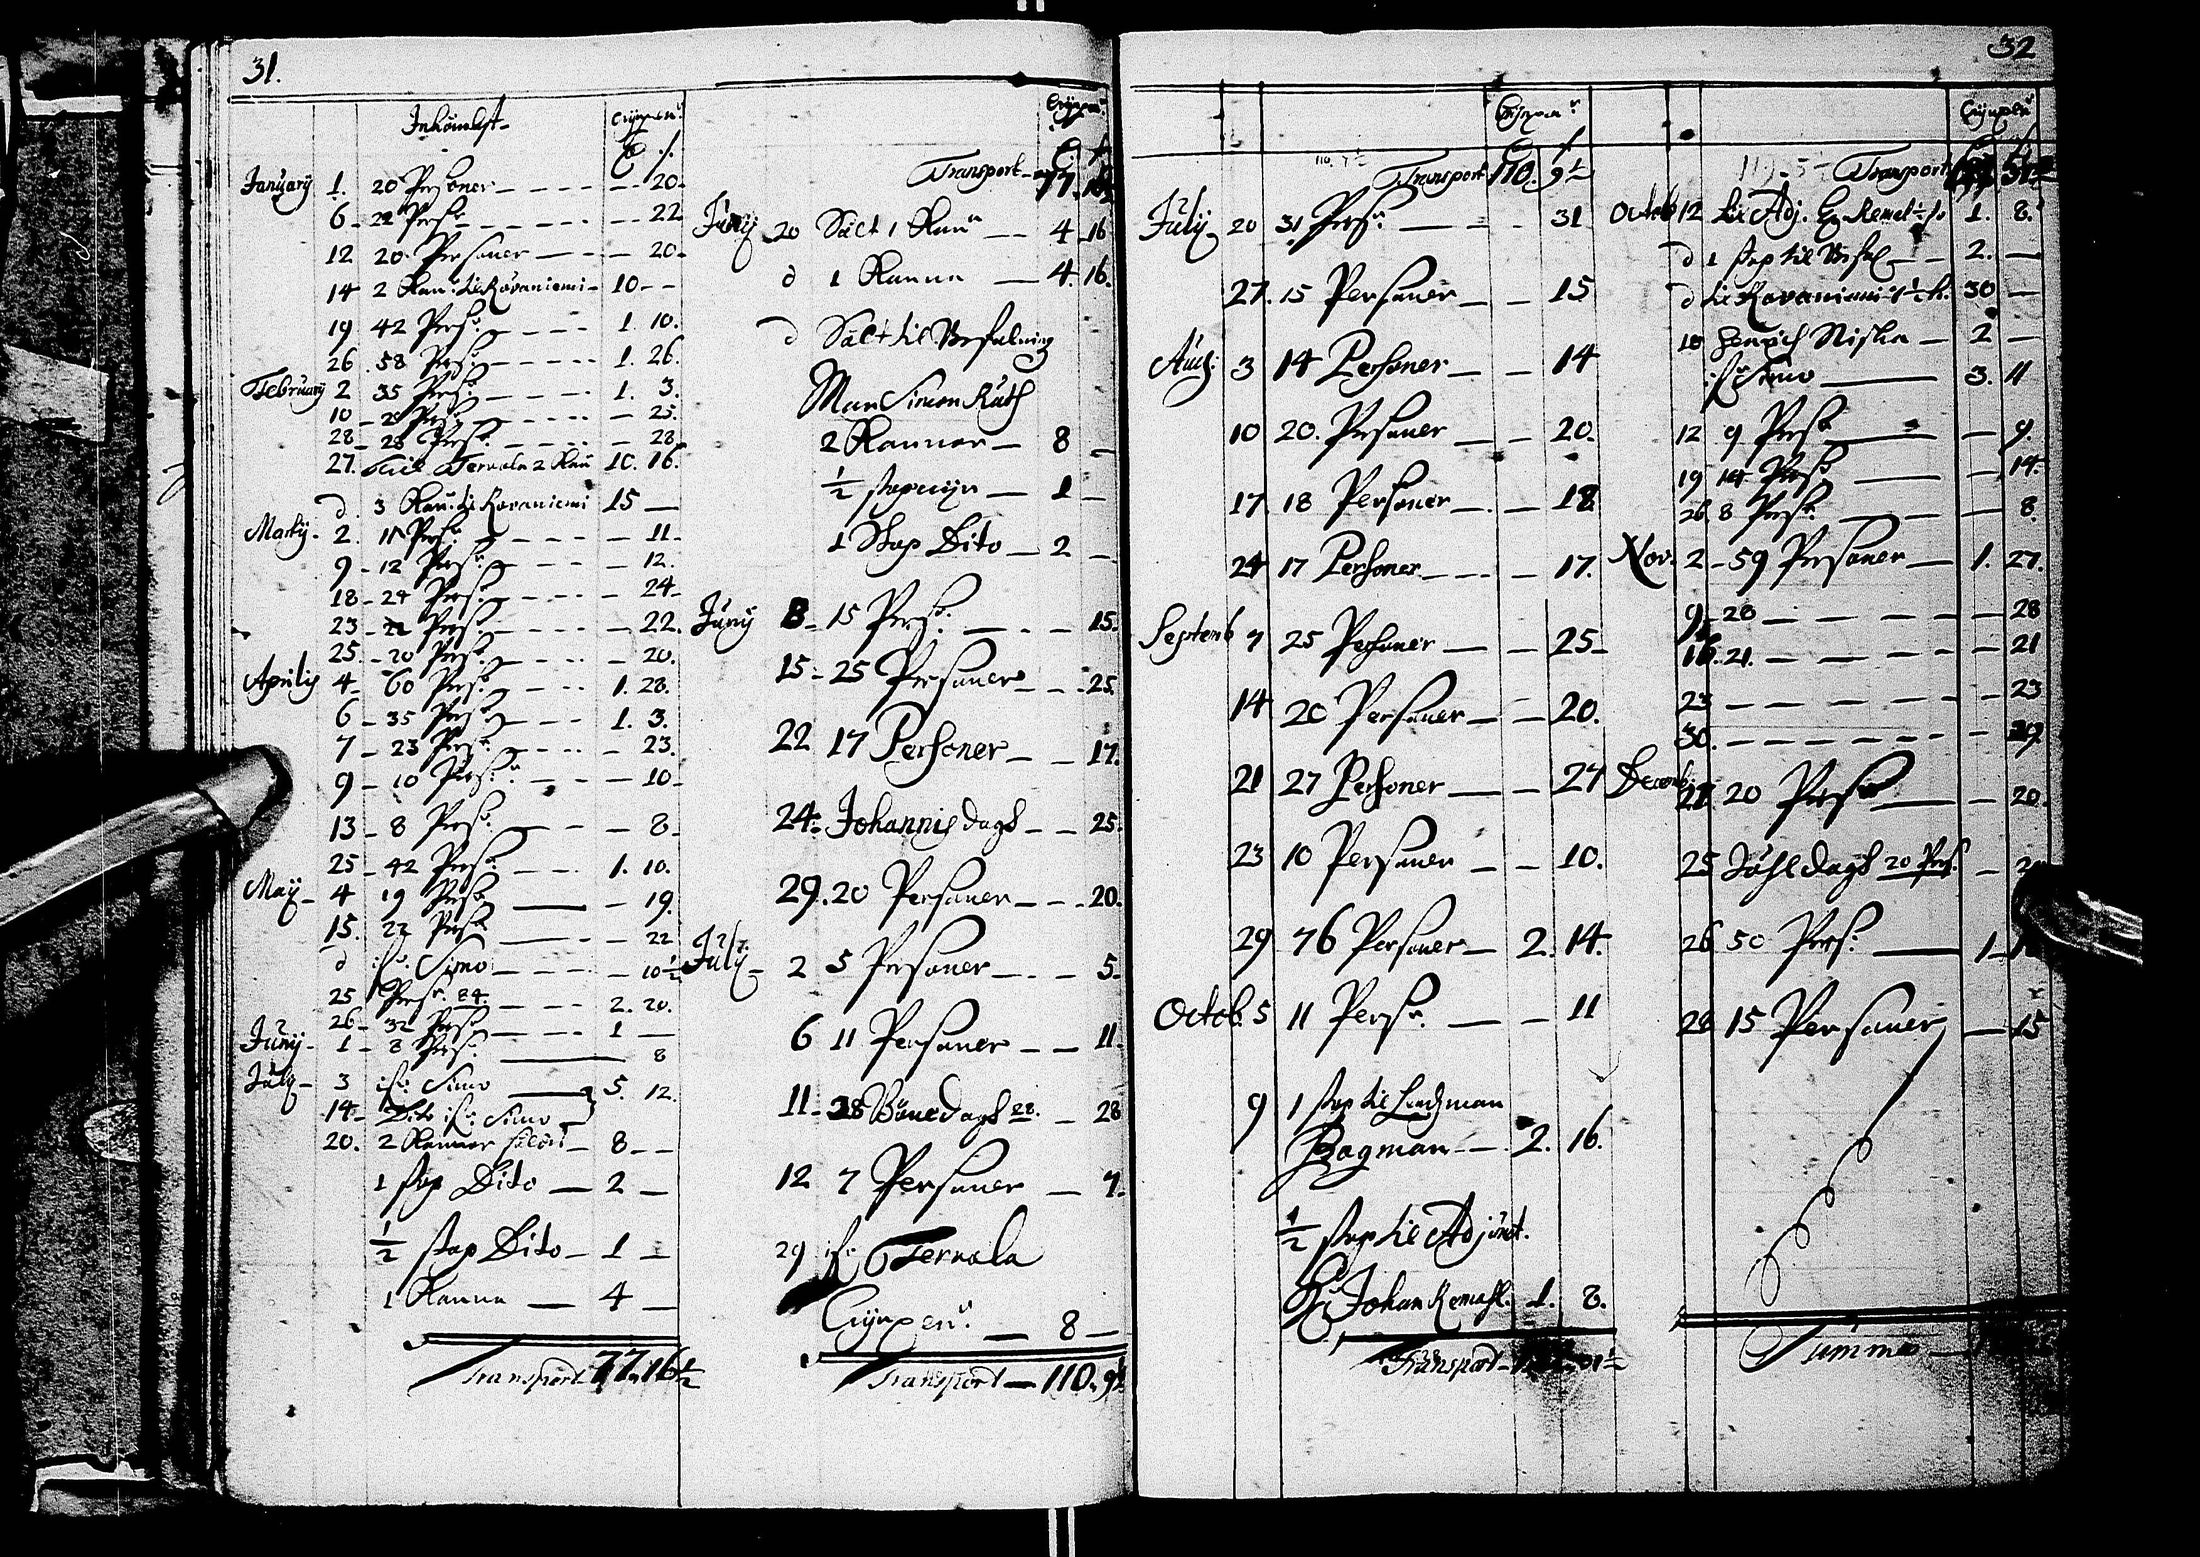 31.
Inkombst
January 1. 20 Personer - - - - - - 20.
6 - 22 Pers: - - - - - - 22
12 20 Personer - - - 20.
14 2 Kan: til Rovaniemi - 10 - -
19 42 Pers: - - - - 1. 10.
26 58 Pers: - - - - 1. 26.
February 2 35 Pers: - - - - 1. 3.
10 - Pers: - - - - 25.
28 - 28 Pers: - - - - 28.
27. Till Tervola 2 Kan 10. 16.
d 3 Kan: til Rovaniemi 15 —
Martij. 2. 11 Pers: - - - 11.
9 - 12 Pers: - - - - 12.
18 - 24 Pers: - - - - 24.
23 - 22 Pers: - - - - 22.
25. - 20 Pers: - - - 20.
Aprilis 4 - 60 Pers: - - - 1. 28.
6 - 35 Pers: - - - 1. 3.
7 - 23 Pers: - - - 23.
9 - 10 Pers: - - - 10.
13 - 8 Pers: - - - 8.
25 - 42 Pers: - - - 1. 10.
May - 4 19 Pers: — - 19.
15. 22 Pers: — - 22
d Simo - - - - 10 1/2
25 Pers: 84. - - - 2. 20.
26 - 32 Pers: - - - 1 —
Junij - 1 - 8 Pers: — 8
July - 3 Simo — 5. 12.
14 - Dito Simo
20. 2 Kannor - 8 - -
1 stop Dito — 2 —
1/2 stop Dito - 1 —
1 Kanna — 4 —
Transport 77. 16 1/2
Transport - 77.
20 Sält 1 Kan - - 4 16
d 1 Kanna — 4. 16.
d Sält til Befalning
Man Simon Räth
2 Kannor - 8 —
1/2 stop wijn — 1 —
1 Stop Dito — 2 —
Junij 8 - 15 Pers: - - - 15.
15 - 25 Personer - - - 25.
22 17 Personer - - 17.
24. Johannis dagh - - 25.
29. 20 Personer - - - 20.
July - 2 5 Personer - - - 5.
6 11 Personer - - 11.
11 - 28 Bönedagh 28. - 28
12 7 Personer — 7.
29 Tervola
Crijnpen: — 8 —
Transport — 110. 9 1/2
32
Transport 110. 9 1/2
July 20 31 Pers: - - - 31
27. 15 Personer - - 15
Aug: 3 14 Personer - - 14
10 20. Personer - - 20.
17. 18 Personer - - 18.
24 17 Personer - - - 17.
Septemb 7 25 Personer - - 25.
14 20 Personer - - 20.
21 27 Personer - - 27
23 10 Personer - - 10.
29 76 Personer - 2. 14.
Octob. 5 11 Pers: - - 11
9 1 stop til Lendzman
Bagman - - 2. 16.
1/2 stop til Adjunct.
Johan Remahl. 1. 8.
Transport
Transport
Octob 12 til Adj. 1. 8.
d 1 stop til - 2. —
d til Rovaniemi 30 —
Henrich Niska — 2 —
Simo — 3. 11
12 9 Pers: — - 9.
19 14 Pers: — - 14.
26. 8 Pers: — — 8.
Nov. 2 - 59 Personer — 1. 27.
9. 28 - - - 28
16. 21. - - - 21
23 - - - - 23
30. - - - -
Decemb. 20 Pers: — - 20.
25 Juhl dagh 20 Pers. -
26 50 Pers: — 1.
28 15 Personer — 15
Summa —